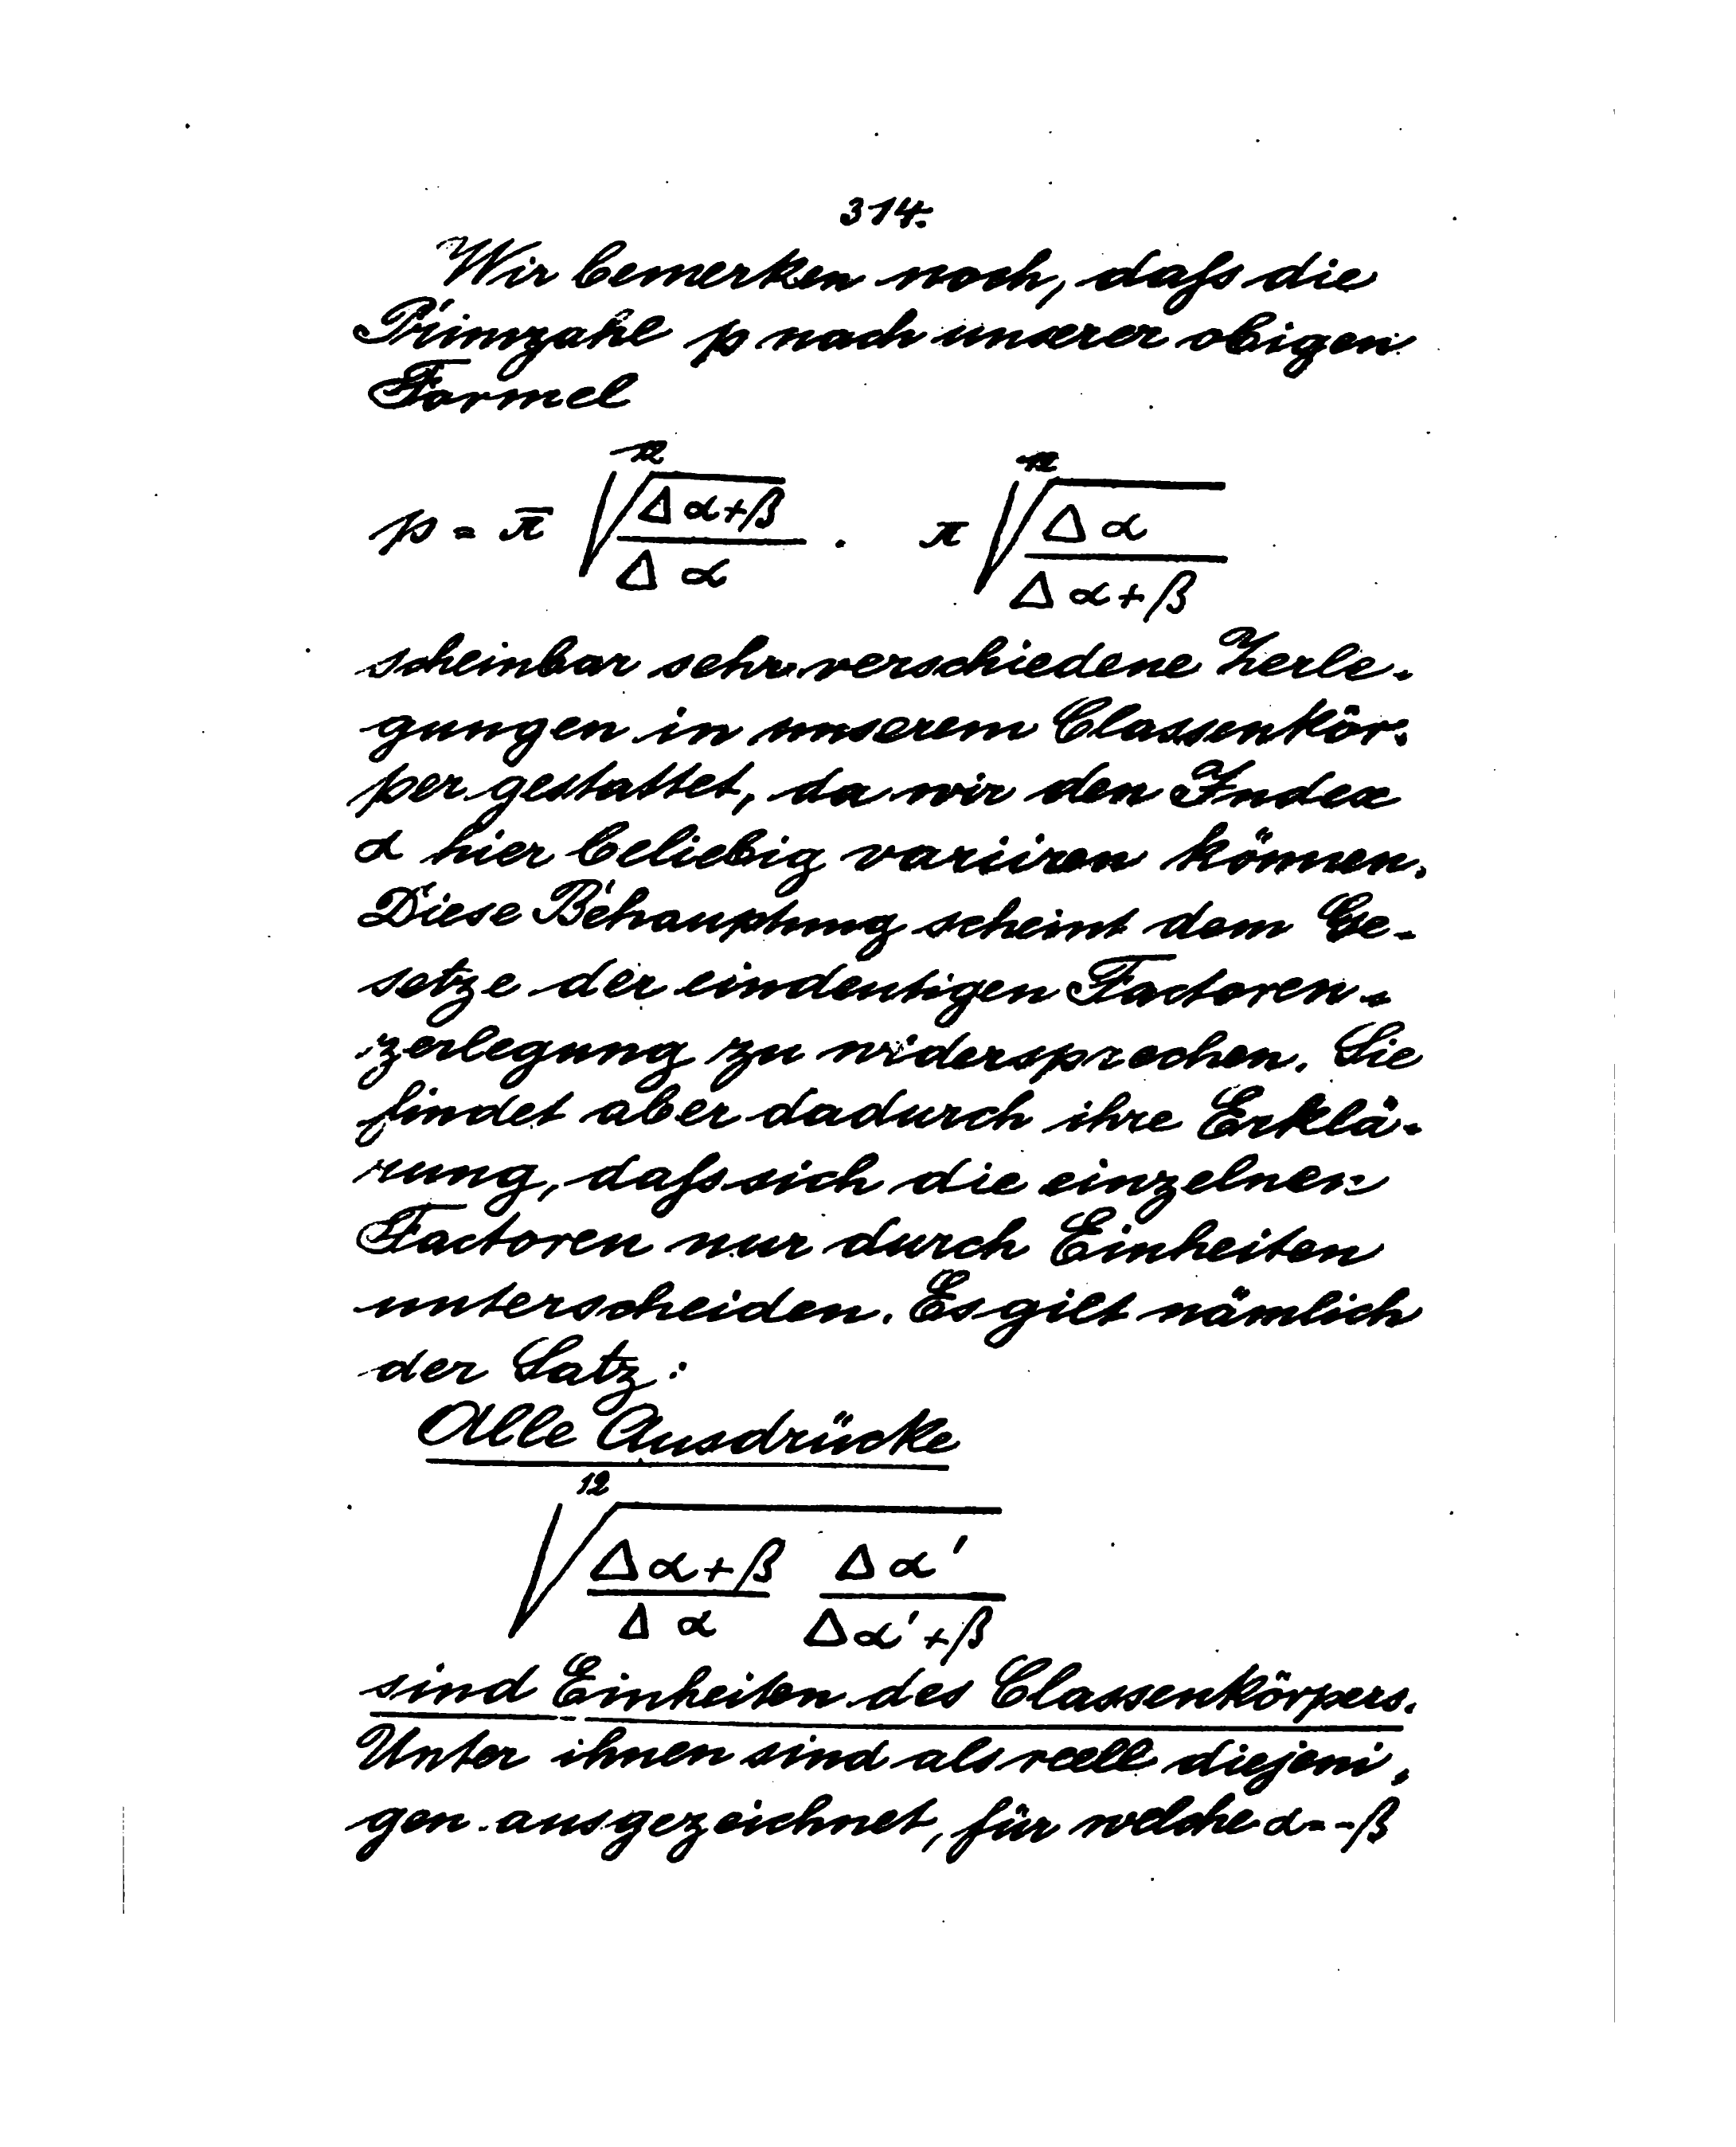 314.
Wir bemerken noch, daſs die
Primzahl p nach unserer obigen
Formel
p = π̄ \sqrt[12]{\frac{Δα+β}{Δα}} . π \sqrt[12]{\frac{Δα}{Δα+β}}
scheinbar sehr verschiedene Zerle-
gungen in unserem Classenkör-
per gestattet, da wir den Index
α hier beliebig variiren können.
Diese Behauptung scheint dem Ge-
setze der eindeutigen Factoren-
zerlegung zu widersprechen. Sie
findet aber dadurch ihre Erklä-
rung, daſs sich die einzelnen
Factoren nur durch Einheiten
unterscheiden. Es gilt nämlich
der Satz:
Alle Ausdrücke
\sqrt[12]{\frac{Δα+β}{Δα} \frac{Δα'}{Δα'+β}}
sind Einheiten des Classenkörpers.
Unter ihnen sind als reell diejeni-
gen ausgezeichnet, für welche α=-β